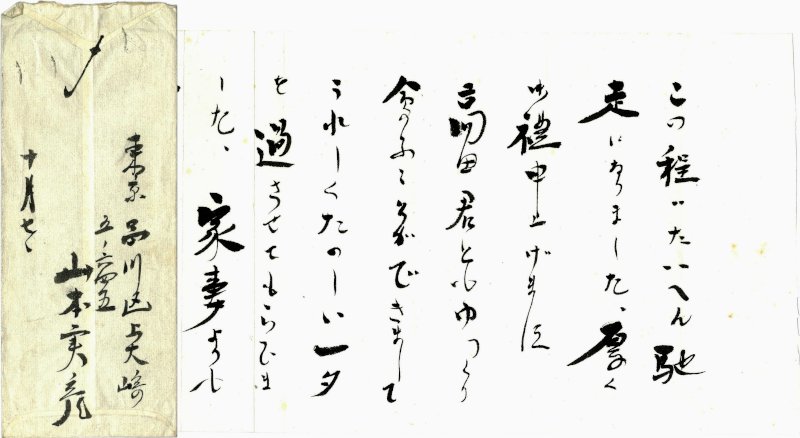 この程はたいへん馳
走になりました、厚く
御禮申上げます
高田君ともゆつくり
会ふことができまして
うれしくたのしい一夕
を過させてもらひま
した、家妻よりも
〆
東京品川区上大崎
五ノ六四五
山本実彦
十月七、